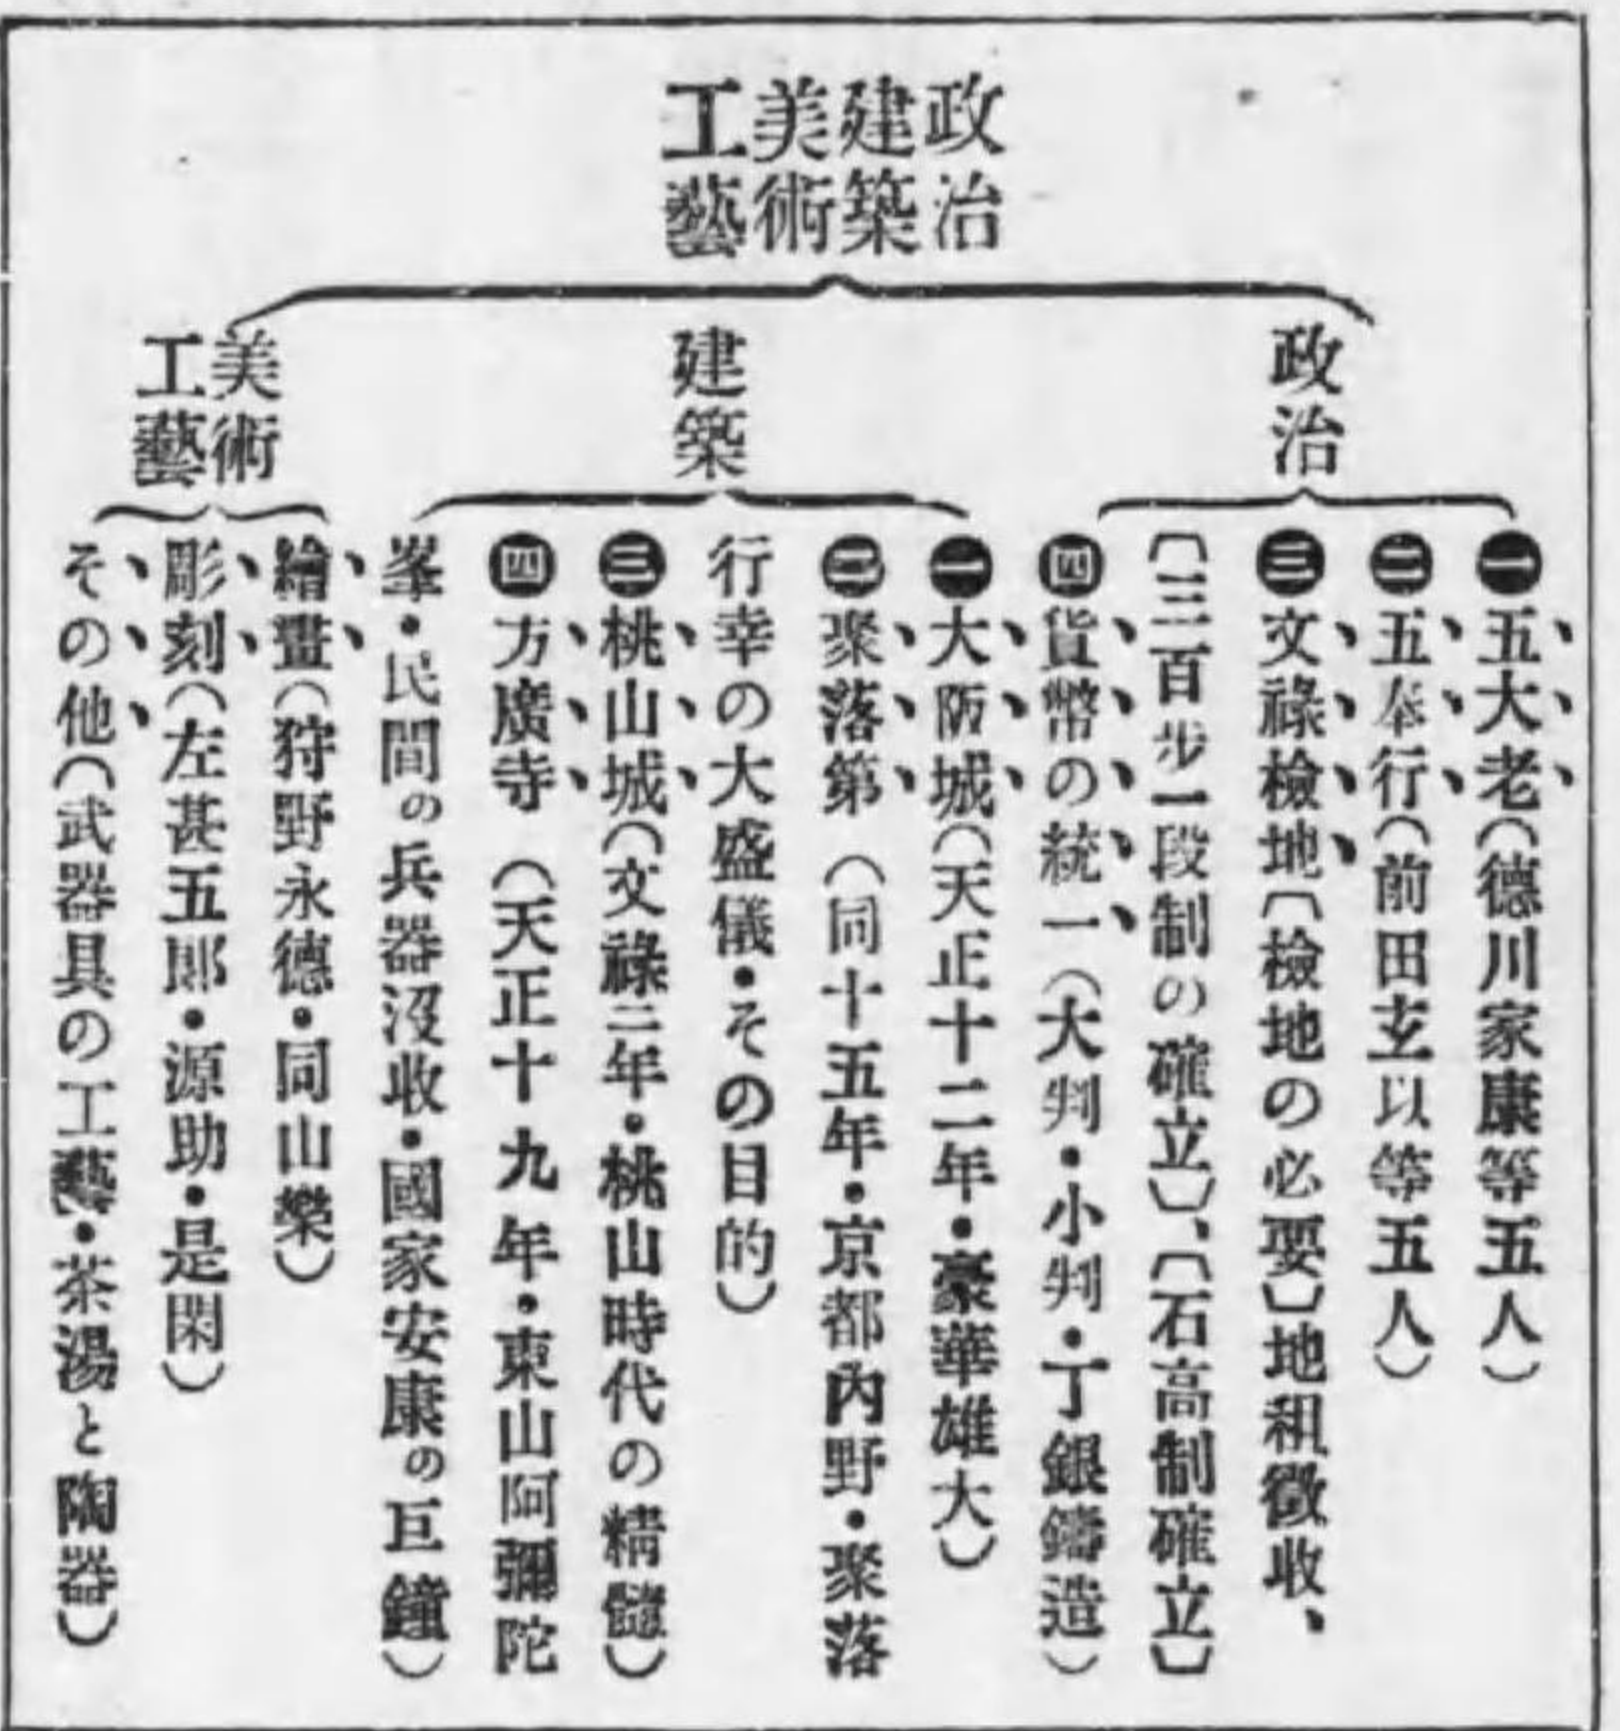 政治
建築
美術
工藝
政治
㊀五大老(德川家康等五人)
㊁五奉行(前田玄以等五人)
㊂文祿檢地〔檢地の必要〕地租徵收、
〔三百步一段制の確立〕、〔石高制確立〕
㊃貨幣の統一(大判・小判・丁銀鑄造)
建築
㊀大阪城(天正十二年・豪華雄大)
㊁聚落第(同十五年・京都內野・聚落
行幸の大盛儀・その目的)
㊂桃山城(文祿三年・桃山時代の精髓)
㊃方廣寺(天正十九年・東山阿彌陀
峯・民間の兵器沒收・國家安康の巨鐘)
美術
工藝
繪畫(狩野永德・同山樂)
彫刻(左甚五郎・源助・是閑)
その他(武器具の工藝・茶湯と陶器)